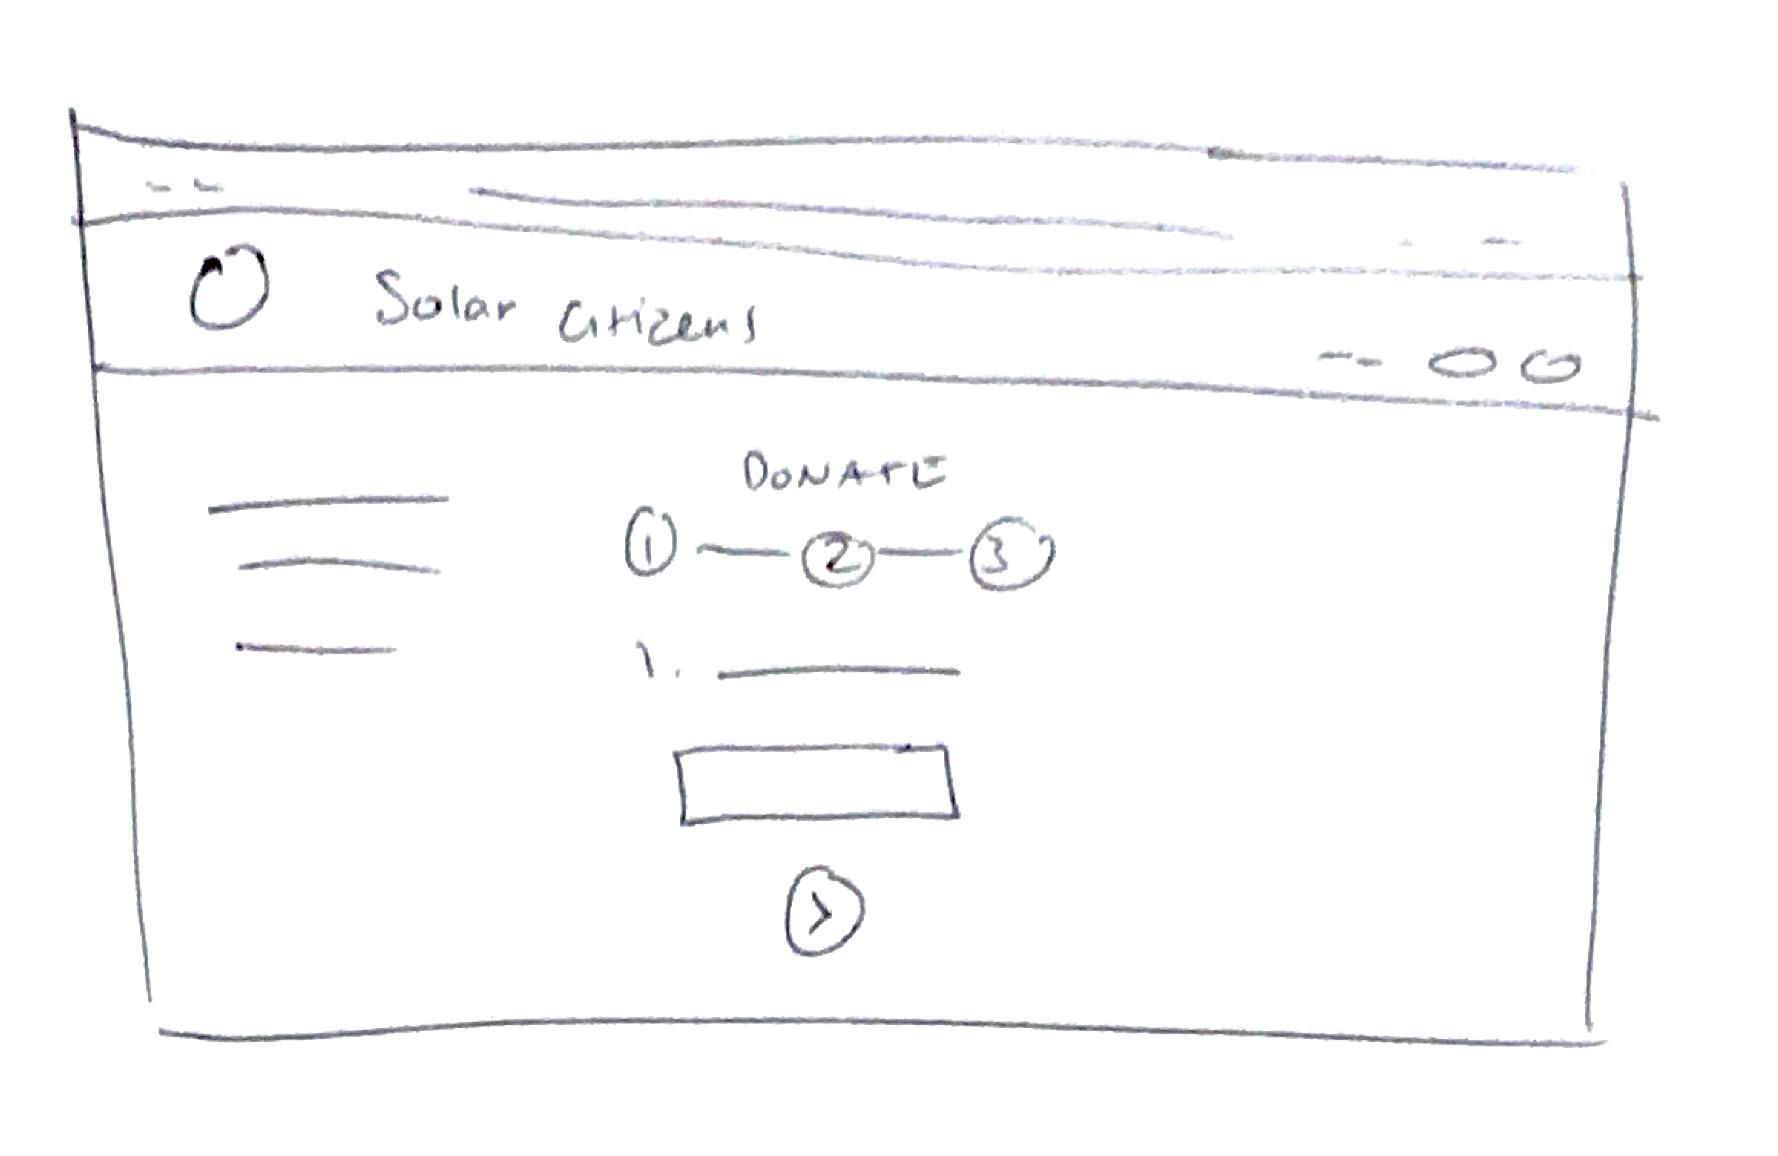 Solar Citizens
DONATE
1 2 3
1.
>